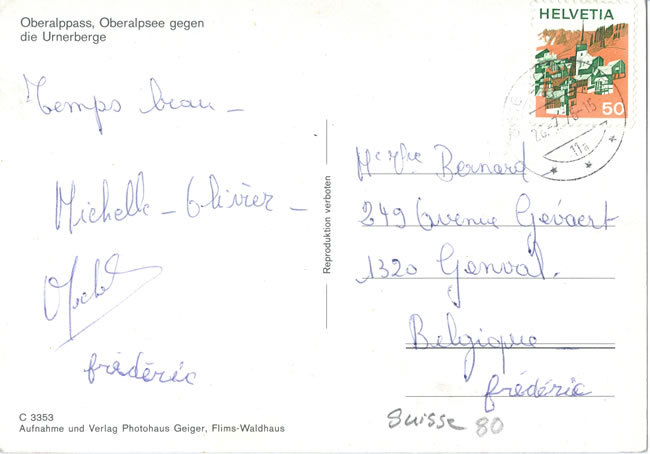 Oberalppass, Oberalpsee gegen
die Urnerberge
HELVETIA
50
11a
Temps beau -
Michelle - Olivier -
Michel
frédéric
Reproduktion verboten
Bernard
249 Avenue Gevaert
1320 Genval.
Belgique
frédéric
Suisse 80
C 3353
Aufnahme und Verlag Photohaus Geiger, Flims-Waldhaus